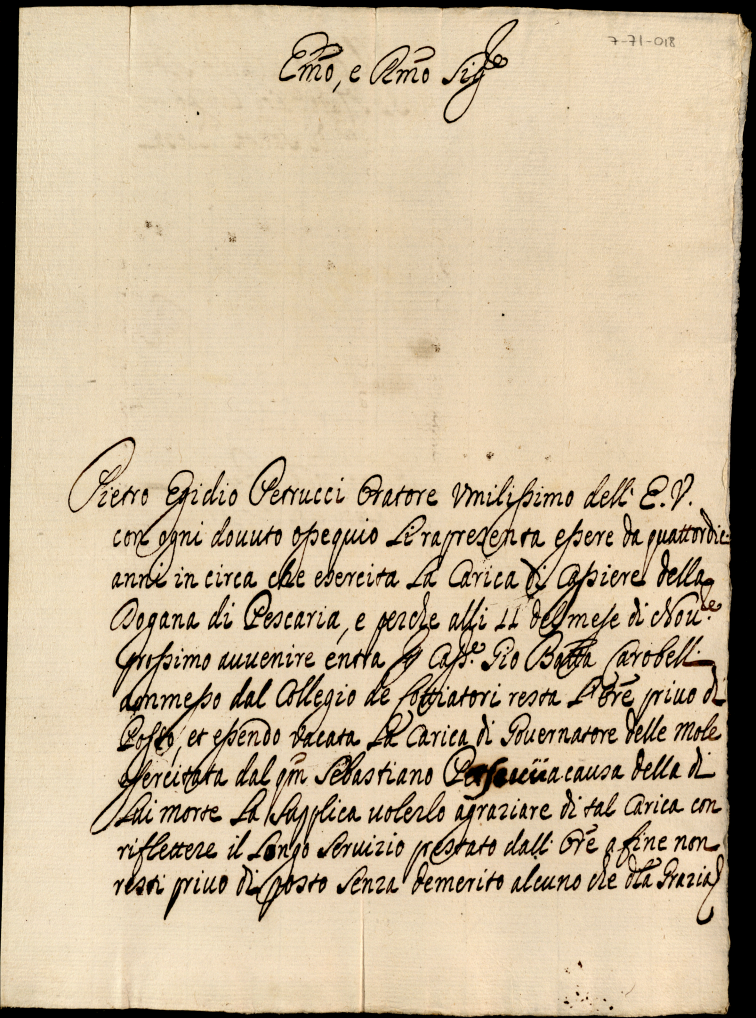 7-71-018
Emo, e Rmo Sigre
Pietro Egidio Petrucci Oratore Vmilissimo dell' E.V.
con ogni douuto ossequio Li rapresenta essere da quattordici
anni in circa che esercita La Carica di Cassiere della
Dogana di Pescaria, e perche alli 11 del mese di Noue
prossimo auuenire entra p Casse Gio Batta Carobelli
ammesso dal Collegio de resta L'Ore priuo di
Posto, et essendo vacata La Carica di Gouernatore delle mole
essercitata dal qm Sebastiano a causa della di
Lui morte La Supplica uolerlo agraziare di tal Carica con
riflettere il Longo Seruizio prestato dall' Ore a fine non
resti priuo di posto Senza demerito alcuno che dlla Grazia